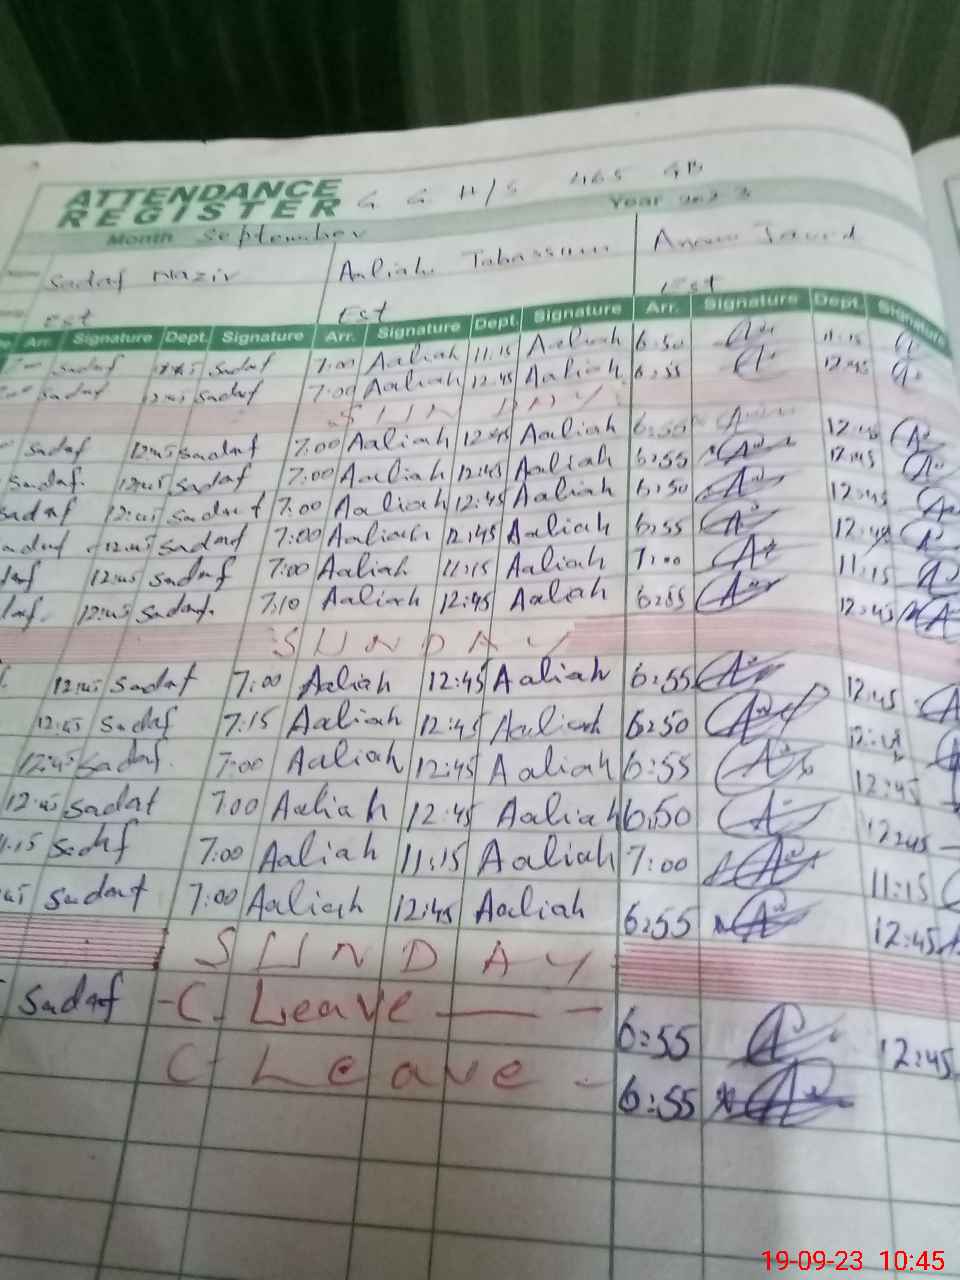 ATTENDANCE
REGISTER G G H/S 465 GB
Month September Year 2023
Sadaf Nazir Aaliah Tabassum Javed
Est Est Est
Arr. Signature Dept. Signature Arr. Signature Dept. Signature Arr. Signature Dept. Signature
sadaf sadaf 7:00 Aaliah 11:15 Aaliah 6:50 11:15
sadaf 12:45 sadaf 7:00 Aaliah 12:45 Aaliah 6:55 12:45
SUNDAY
sadaf 12:45 sadaf 7:00 Aaliah 12:45 Aaliah 6:50 12:45
sadaf 12:45 sadaf 7:00 Aaliah 12:45 Aaliah 6:55 12:45
sadaf 12:45 sadaf 7:00 Aaliah 12:45 Aaliah 6:50 12:45
12:45 sadaf 7:00 Aaliah 12:45 Aaliah 6:55 12:45
12:45 sadaf 7:00 Aaliah 11:15 Aaliah 7:00 11:15
12:45 sadaf 7:10 Aaliah 12:45 Aaliah 6:55 12:45
SUNDAY
12:45 sadaf 7:00 Aaliah 12:45 Aaliah 6:55 12:45
12:45 sadaf 7:15 Aaliah 12:45 Aaliah 6:50
12:45 sadaf 7:00 Aaliah 12:45 Aaliah 6:55 12:45
12:45 sadaf 7:00 Aaliah 12:45 Aaliah 6:50 12:45
11:15 sadaf 7:00 Aaliah 11:15 Aaliah 7:00 11:15
sadaf 7:00 Aaliah 12:45 Aaliah 6:55 12:45
SUNDAY
Sadaf C. Leave 6:55 12:45
C. Leave 6:55
19-09-23 10:45